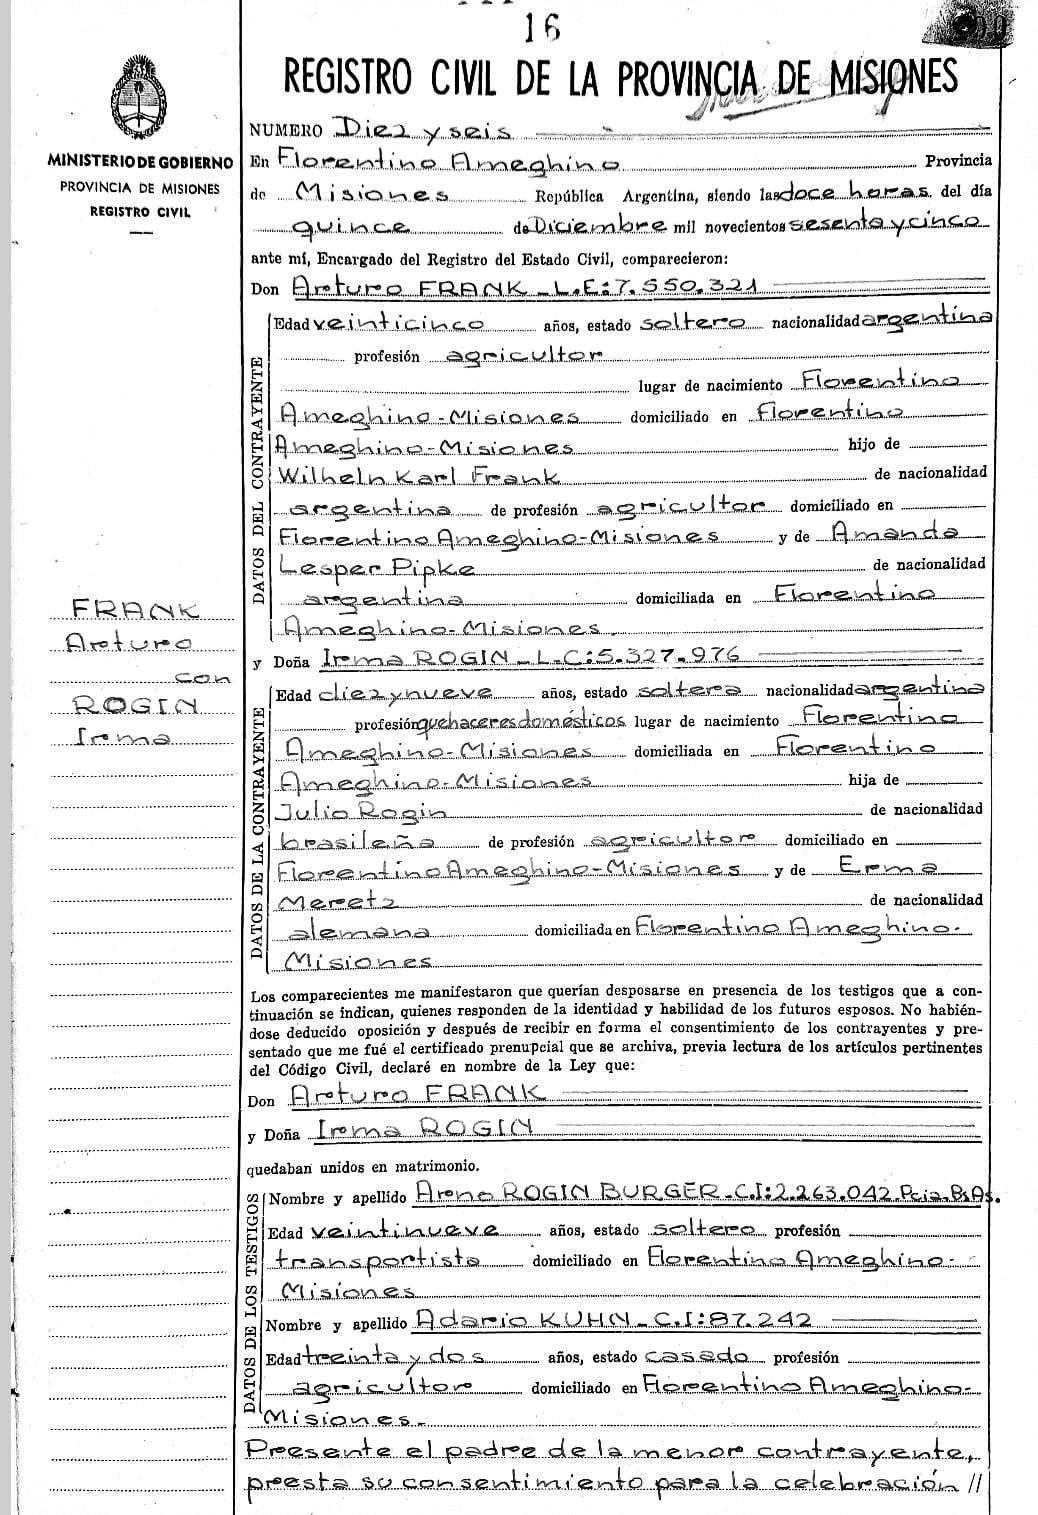 16
REGISTRO CIVIL DE LA PROVINCIA DE MISIONES
MINISTERIO DE GOBIERNO
PROVINCIA DE MISIONES
REGISTRO CIVIL
NUMERO Diez y seis
En Florentino Ameghino Provincia
de Misiones República Argentina, siendo las doce horas del día
quince de Diciembre mil novecientos sesenta y cinco
ante mí, Encargado del Registro del Estado Civil, comparecieron:
Don Arturo FRANK - L.E:7.550.321
DATOS DEL CONTRAYENTE
Edad veinticinco años, estado soltero nacionalidad argentina
profesión agricultor
lugar de nacimiento Florentino
Ameghino-Misiones domiciliado en Florentino
Ameghino-Misiones hijo de
Wilheln Karl Frank de nacionalidad
argentina de profesión agricultor domiciliado en
Florentino Ameghino-Misiones y de Amanda
Lesper Pipke de nacionalidad
argentina domiciliada en Florentino
Ameghino-Misiones.
FRANK
Arturo
con
ROGIN
Irma
y Doña Irma ROGIN - L.C:5.327.976
DATOS DE LA CONTRAYENTE
Edad diez y nueve años, estado soltera nacionalidad argentina
profesión quehaceres domésticos lugar de nacimiento Florentino
Ameghino-Misiones domiciliada en Florentino
Ameghino-Misiones hija de
Julio Rogin de nacionalidad
brasileña de profesión agricultor domiciliado en
Florentino Ameghino-Misiones y de Erma
Meretz de nacionalidad
alemana domiciliada en Florentino Ameghino-
Misiones
Los comparecientes me manifestaron que querían desposarse en presencia de los testigos que a con-
tinuación se indican, quienes responden de la identidad y habilidad de los futuros esposos. No habién-
dose deducido oposición y después de recibir en forma el consentimiento de los contrayentes y pre-
sentado que me fué el certificado prenupcial que se archiva, previa lectura de los artículos pertinentes
del Código Civil, declaré en nombre de la Ley que:
Don Arturo FRANK
y Doña Irma ROGIN
quedaban unidos en matrimonio.
DATOS DE LOS TESTIGOS
Nombre y apellido Arno ROGIN BURGER - C.I:2.263.042 Pcia. Bs As.
Edad veintinueve años, estado soltero profesión
transportista domiciliado en Florentino Ameghino-
Misiones
Nombre y apellido Adario KUHN - C.I:87.242
Edad treinta y dos años, estado casado profesión
agricultor domiciliado en Florentino Ameghino-
Misiones.-
Presente el padre de la menor contrayente,
presta su consentimiento para la celebración //